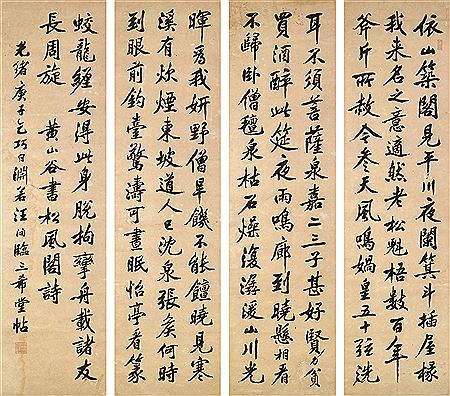 依山築閣見平川夜闌箕斗插屋椽
我來名之意適然老松魁梧數百年
斧斤所赦令參天風鳴媧皇五十弦洗
耳不須菩薩泉嘉二三子甚好賢力貧
買酒醉此筵夜雨鳴廊到曉懸相看
不歸臥僧氈泉枯石燥復潺湲山川光
暉為我妍野僧早饑不能饘曉見寒
溪有炊煙東坡道人已沈泉張侯何時
到眼前釣臺驚濤可晝眠怡亭看篆
蛟龍纏安得此身脫拘攣舟載諸友
長周旋 黃山谷書松風閣詩
光緒庚子乞巧日淵若汪洵臨三希堂帖